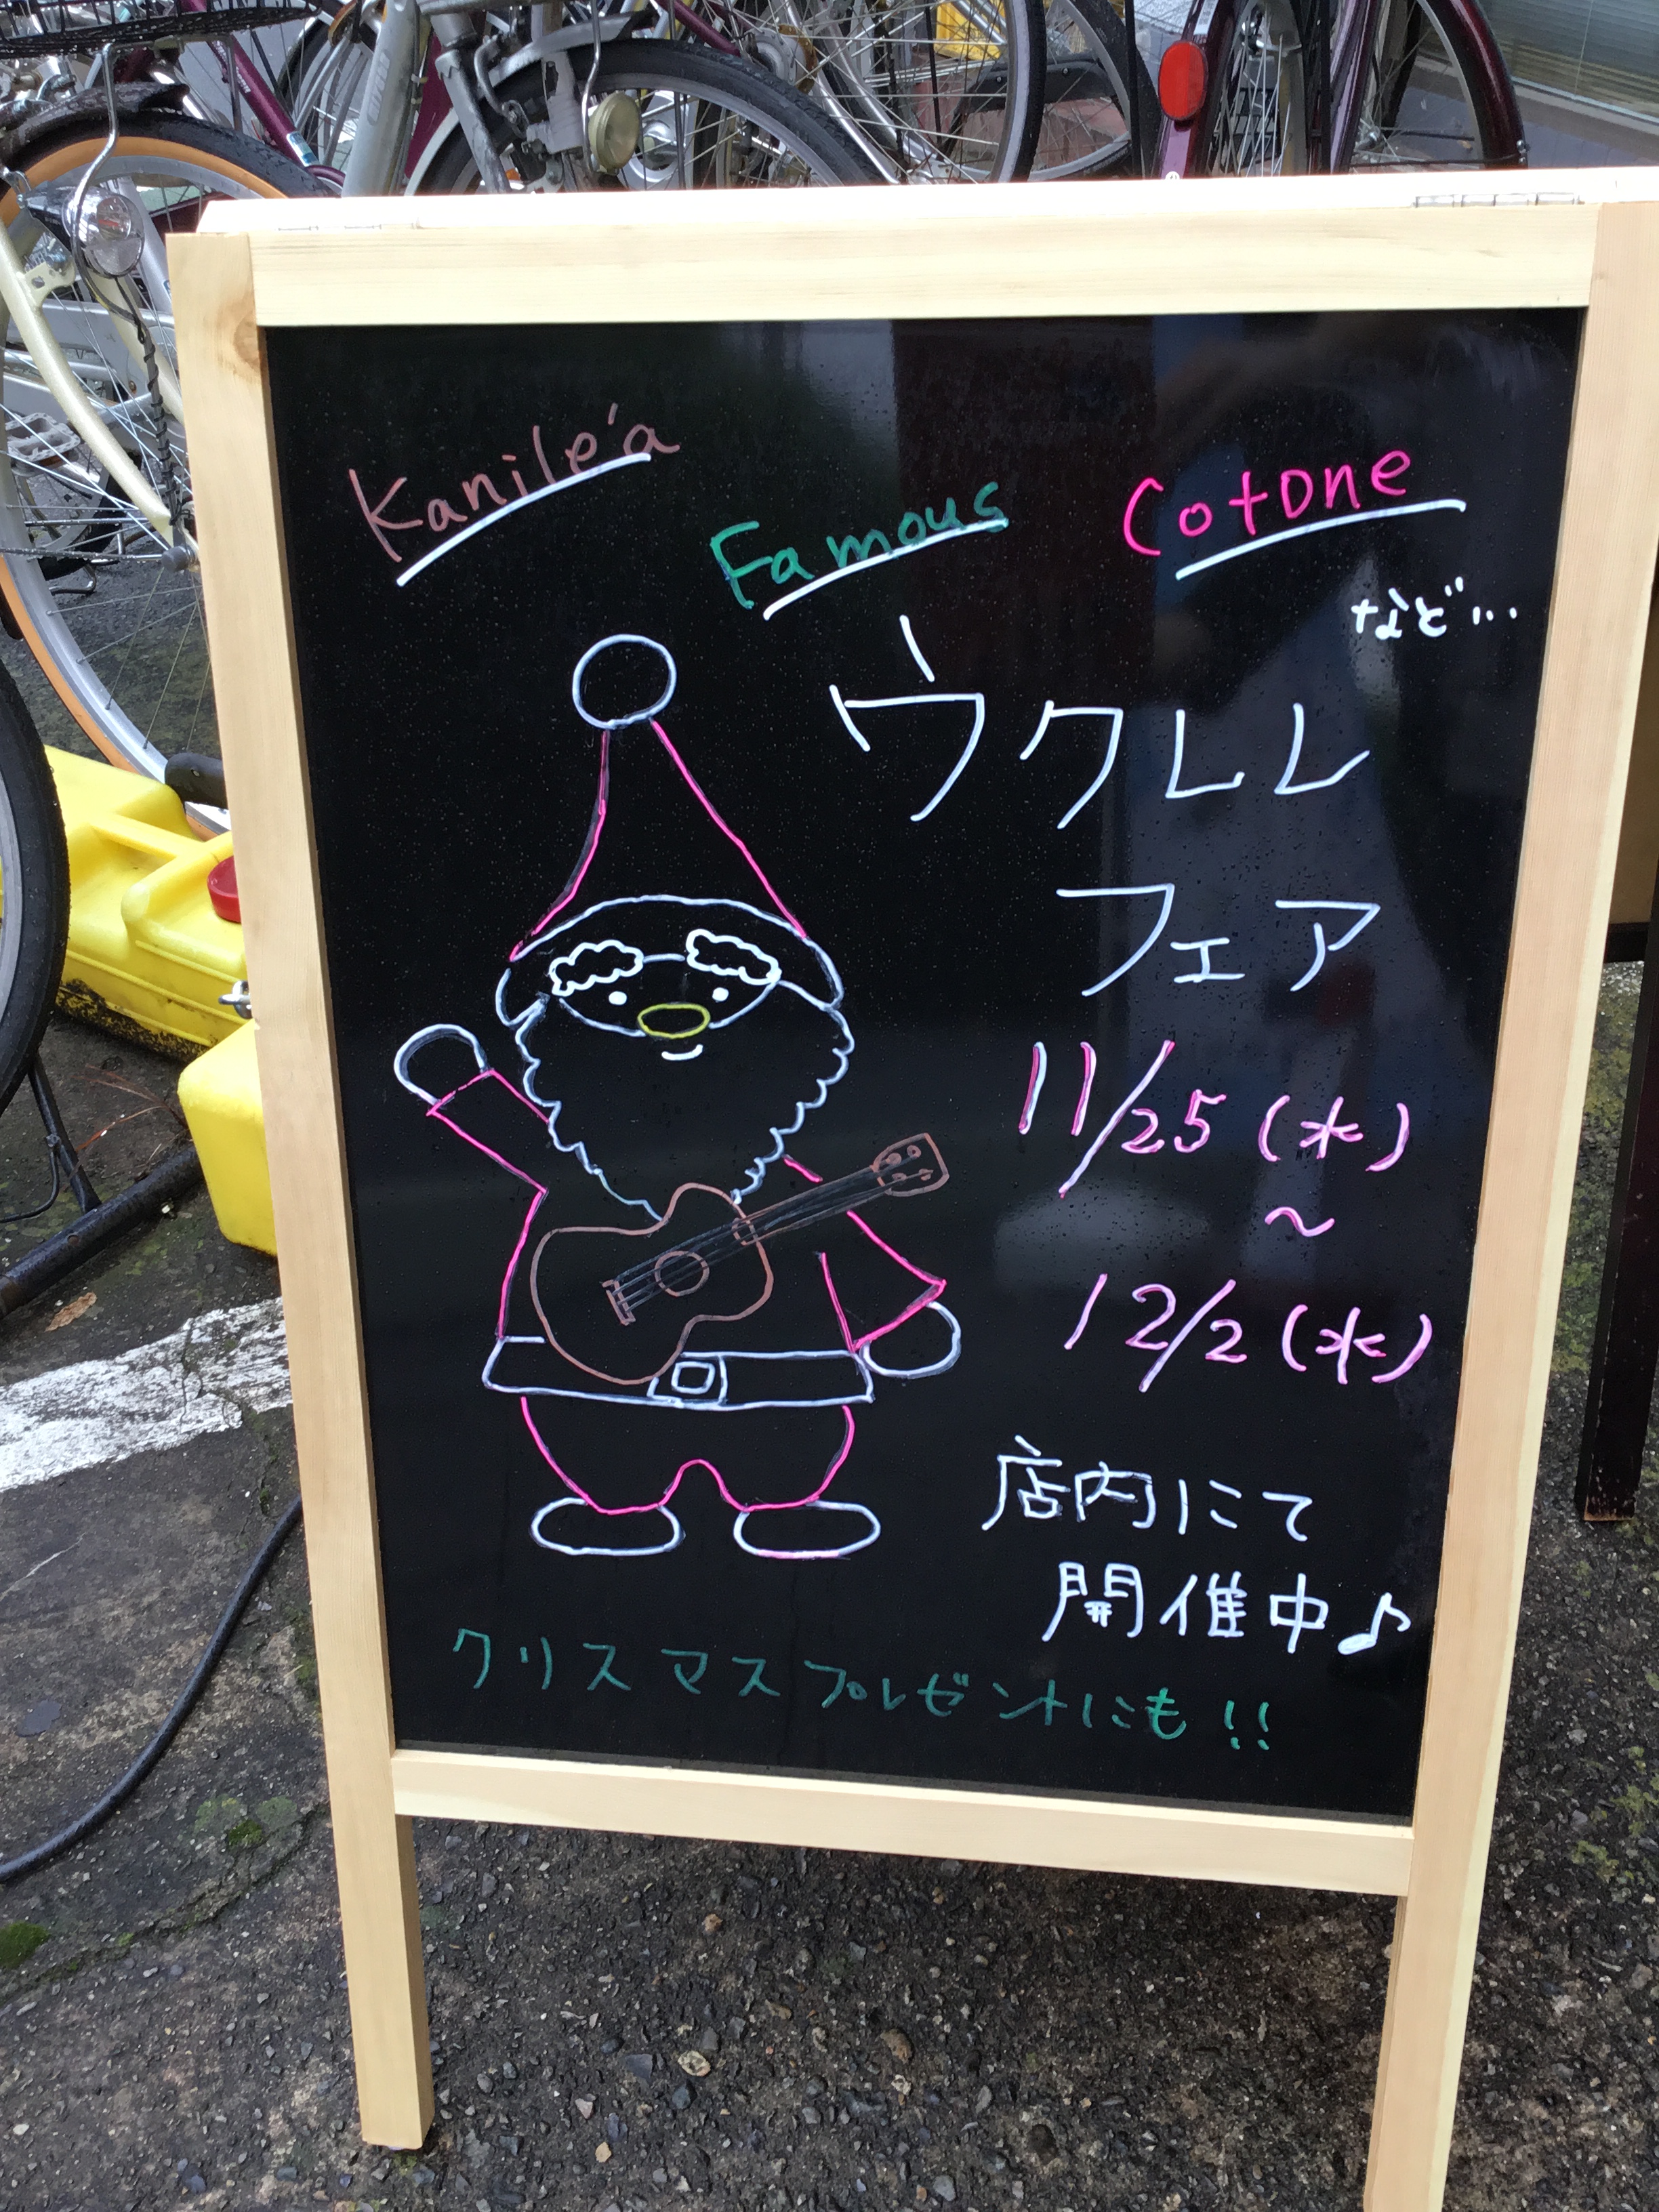 Kanile'a
Famous
Cotone
など...
ウクレレ
フェア
11/25(水)
～
12/2(水)
店内にて
開催中♪
クリスマスプレゼントにも!!